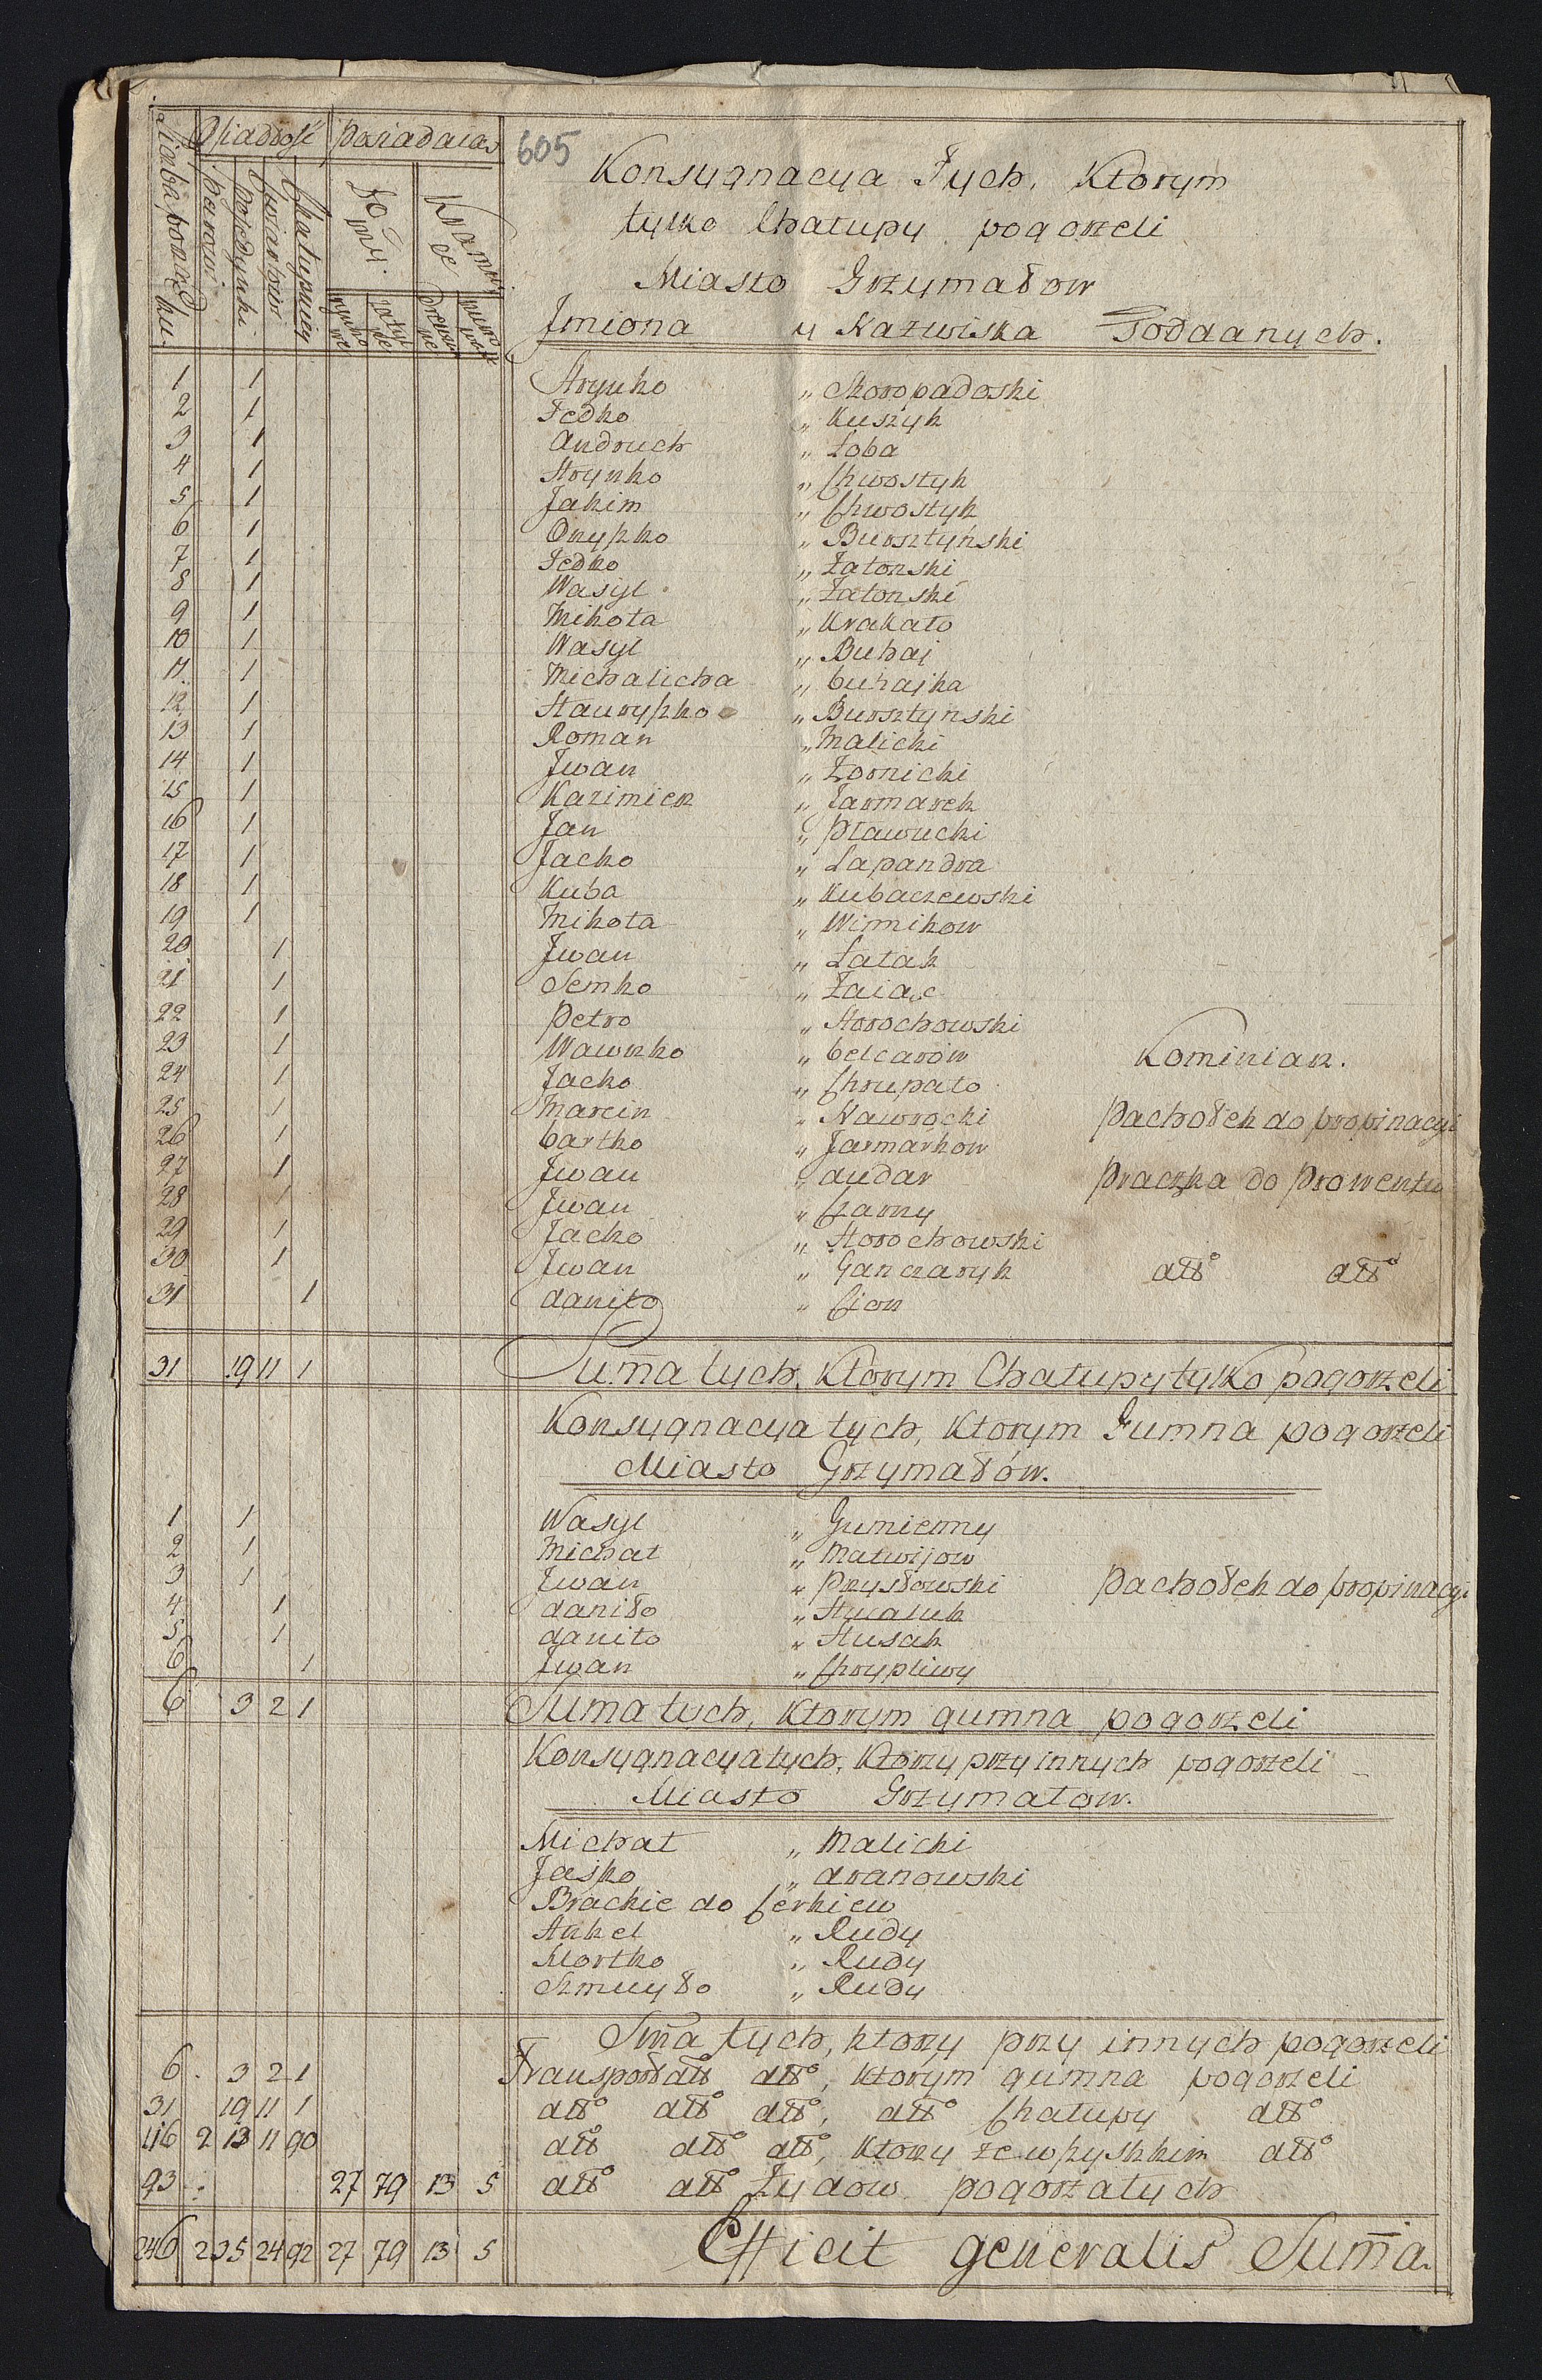 605
Liczba porządku.
Osiadłość posiadaiąc
parowi. pojedynki. Chałupnicy
Domy. Kramnice
rynkowe zatylne drewniane murowane
Konsygnacya Tych, Ktorym
tylko Chałupy pogorzeli
Miasto Grzymałow
Jmiona y Nazwiska Poddanych.
1 1 Hrynko „ Skoropadoski
2 1 Fedko „ Kuszyk
3 1 Andruch „ Łoba
4 1 Hrynko „ Chwostyk
5 1 Jakim „ Chwostyk
6 1 Onyszko „ Bursztyński
7 1 Fedko „ Zatonski
8 1 Wasyl „ Zatonski
9 1 Mikoła „ Krakało
10 1 Wasyl „ Buhaj
11. 1 Michalicha „ buhajka
12 1 Stauryszko „ Bursztynski
13 1 Roman „ Malicki
14 1 Jwan „ Zornicki
15 1 Kazimierz „ Jarmarek
16 1 Jan „ Pławucki
17 1 Jacko „ Łapandra
18 1 Kuba „ Kubaczewski
19 1 Mikoła „ Winnikow
20 1 Jwan „ Łatak
21 1 Semko „ Zaiąc
22 1 Petro „ Horochowski
23 1 Wawrzko „ belcarów Kominiarz.
24 1 Jacko „ Chrupało
25 1 Marcin „ Nawrocki Pachołek do propinacyi
26 1 bartko „ Jarmarkow
27 1 Jwan „ dudar Praczka do Prowentu
28 1 Jwan „ Czarny
29 1 Jacko „ Horochowski
30 1 Jwan „ Ganczaryk dtto dtto
31 1 daniło „ Cion
31 19 11 1 Suma tych, Ktorym Chałupy tylko pogorzeli
Konsygnacya tych, Ktorym Gumna pogorzeli
Miasto Grzymałów.
1 1 Wasyl „ Gumienny
2 1 Michał „ Matwijow
3 1 Jwan „ Przysłowski Pachołek do propinacyi
4 1 daniło „ Hucaluk
5 1 daniło „ Husak
6 1 Jwan „ Chrypliwy
6 3 2 1 Suma tych, Ktorym gumna pogorzeli
Konsygnacya tych, Ktorzy przy innych pogorzeli
Miasto Grzymałow.
Michał „ Malicki
Jaśko „ dranowski
Brackie do Cerkiew
Ankel „ Rudy
Mortko „ Rudy
Szmuyło „ Rudy
Suma tych, ktorzy przy innych pogorzeli
6. 3 2 1 Transport dtto dtto, ktorym gumna pogorzeli
31 19 11 1 dtto dtto dtto, dtto Chałupy dtto
116 2 13 11 90 dtto dtto dtto, Ktorzy ze wszystkim dtto
93 27 79 13 5 dtto dtto Żydow pogorzałych
246 2 35 24 92 27 79 13 5 Efficit generalis Suma.